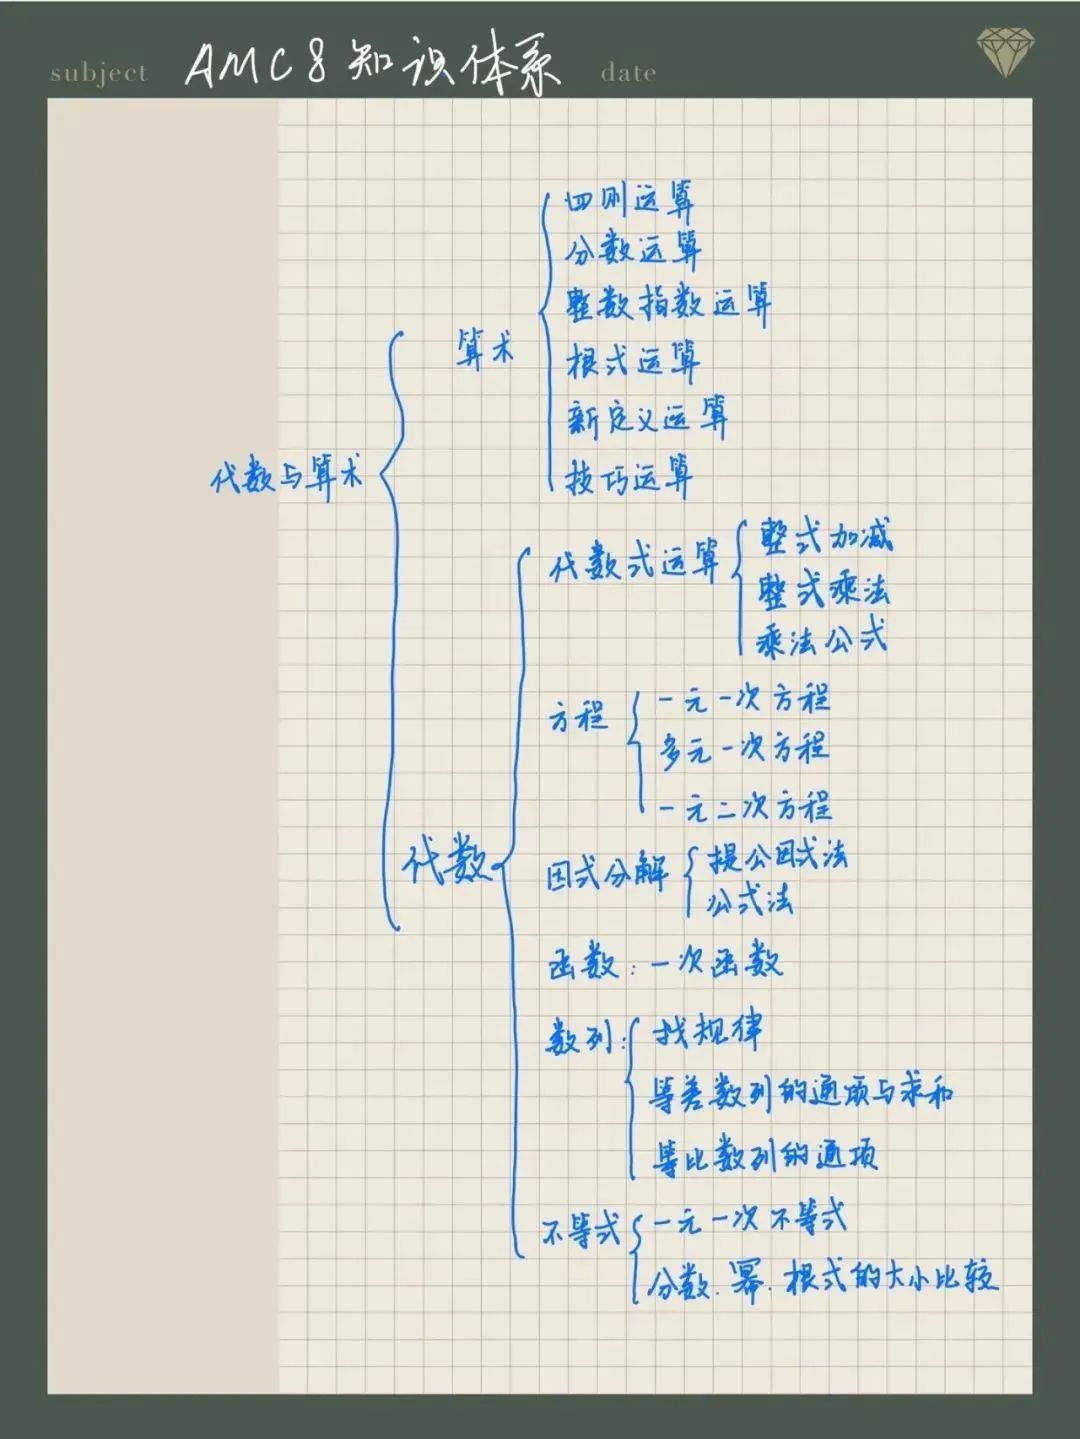 subject AMC8知识体系 date
四则运算
分数运算
整数指数运算
算术
根式运算
新定义运算
代数与算术
技巧运算
代数式运算
整式加减
整式乘法
乘法公式
方程
一元一次方程
多元一次方程
一元二次方程
代数
因式分解
提公因式法
公式法
函数:一次函数
数列:
找规律
等差数列的通项与求和
等比数列的通项
不等式
一元一次不等式
分数.幂.根式的大小比较